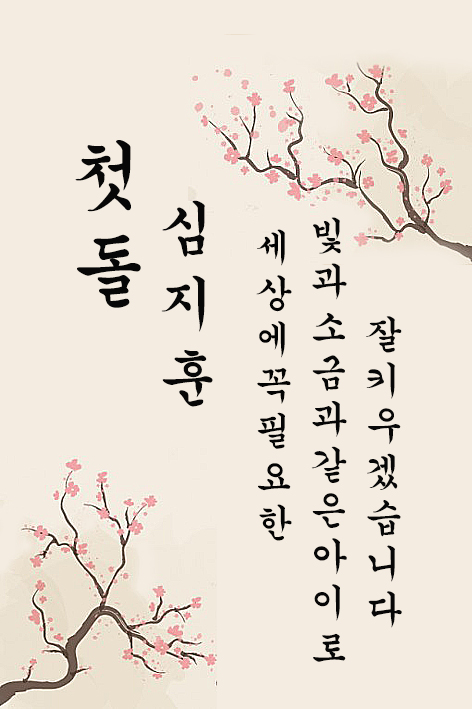 첫돌
심지훈
세상에꼭필요한
빛과소금과같은아이로
잘키우겠습니다